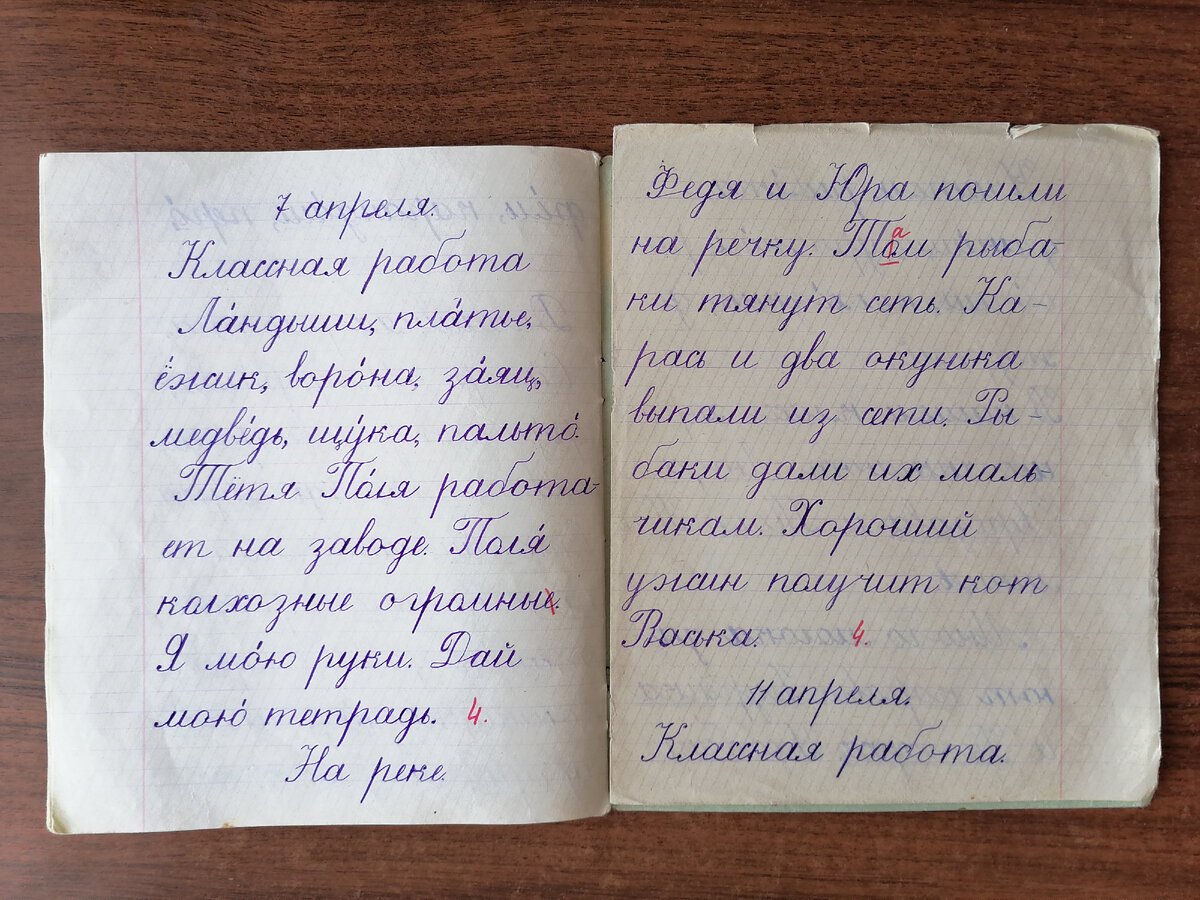 7 апреля.
Классная работа
Ла́ндыши, пла́тье,
ёжик, воро́на, за́яц,
медве́дь, щу́ка, пальто́.
Тётя По́ля работа-
ет на заводе. Поля́
колхозные огромные.
Я мо́ю руки. Дай
мою́ тетрадь. 4.
На реке.
Федя и Юра пошли
на речку. Там рыба-
ки тянут сеть. Ка-
рась и два окунька
выпали из сети. Ры-
баки дали их маль
чикам. Хороший
ужин получит кот
Васька. 4.
11 апреля.
Классная работа.